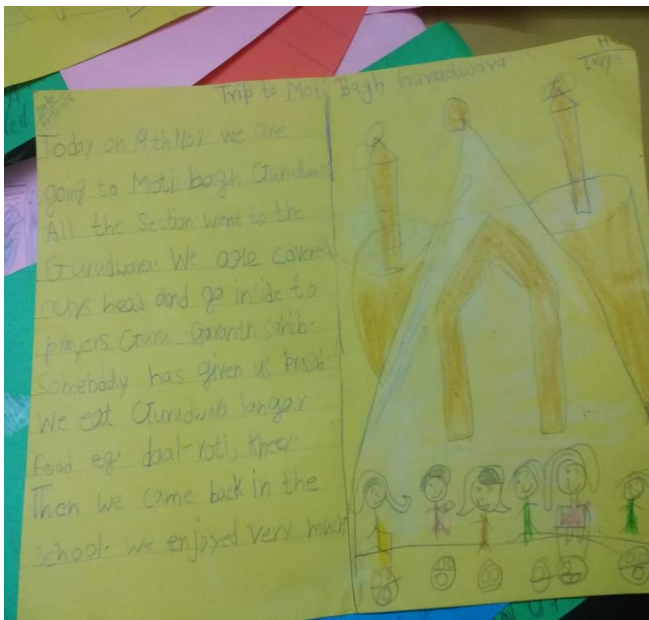 Trip to Moti Bagh Gurudwara
Today on 19th Nov. we are
going to Moti bagh Gurudwara
All the Section went to the
Gurudwara. We are covered
ours head and go inside to
prayers Guru Garanth sahib.
Somebody has given us Prasad.
We eat Gurudwara langar
food eg. daal-roti, kheer.
Then we came back in the
School. We enjoyed very much